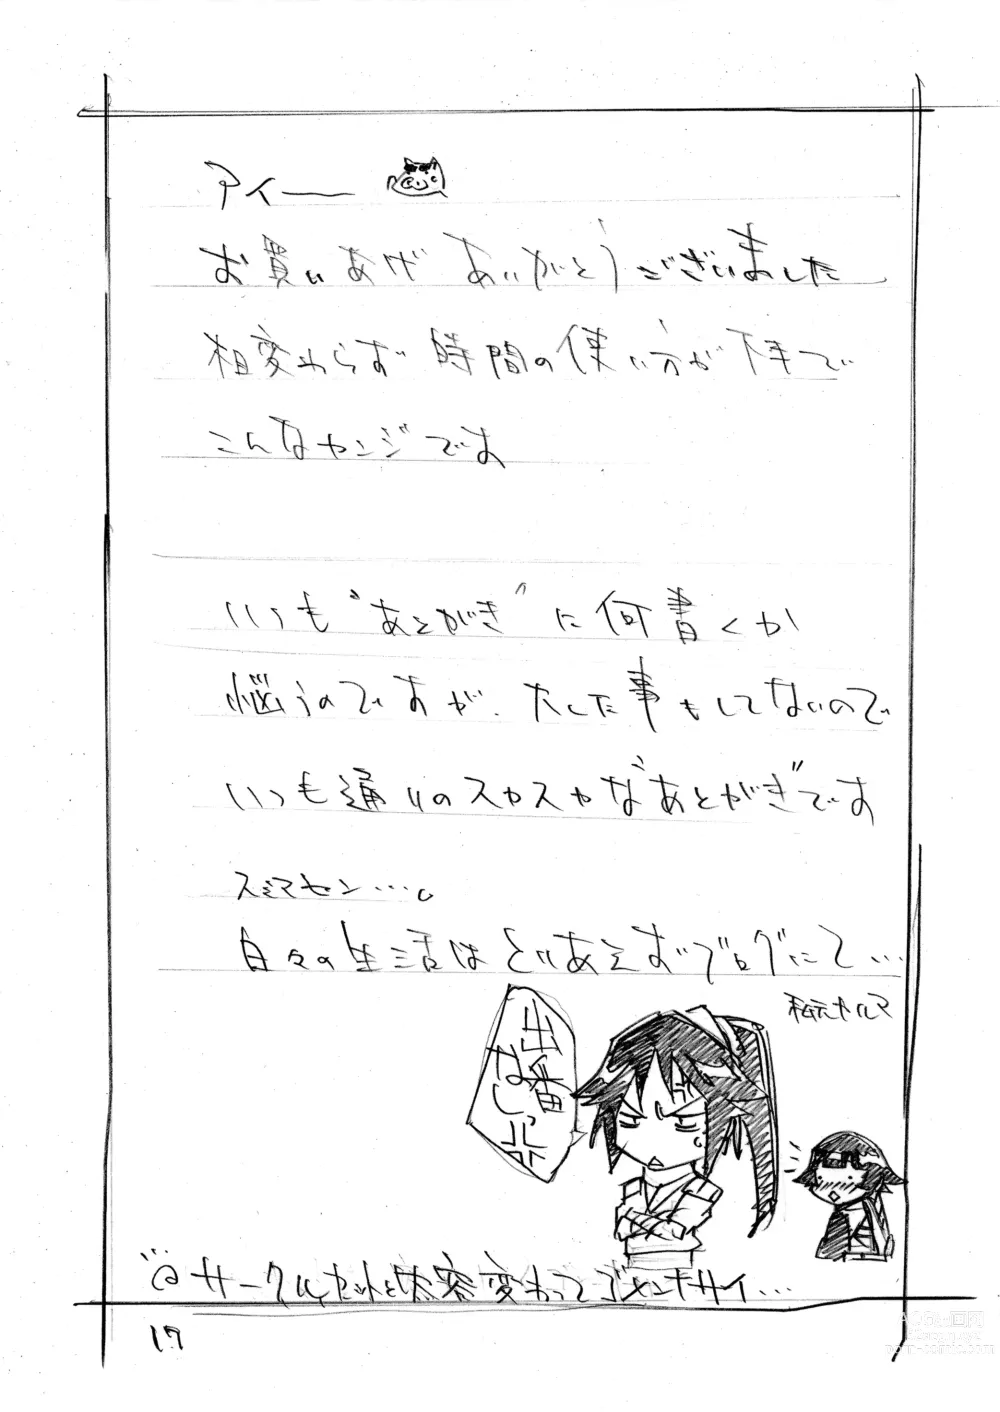 アイー
お買いあげ ありがとうございました
相変わらず 時間の使い方が 下手で
こんなカンジです
いつも"あとがき"に何書くか
悩うのですが、たした事もしてないので
いつも通りのスカスカな"あとがき"です
スミマセン…。
日々の生活はとりあえずブログにて…
出番
なしっ
サークルカットと内容変わってゴメンナサイ…
17